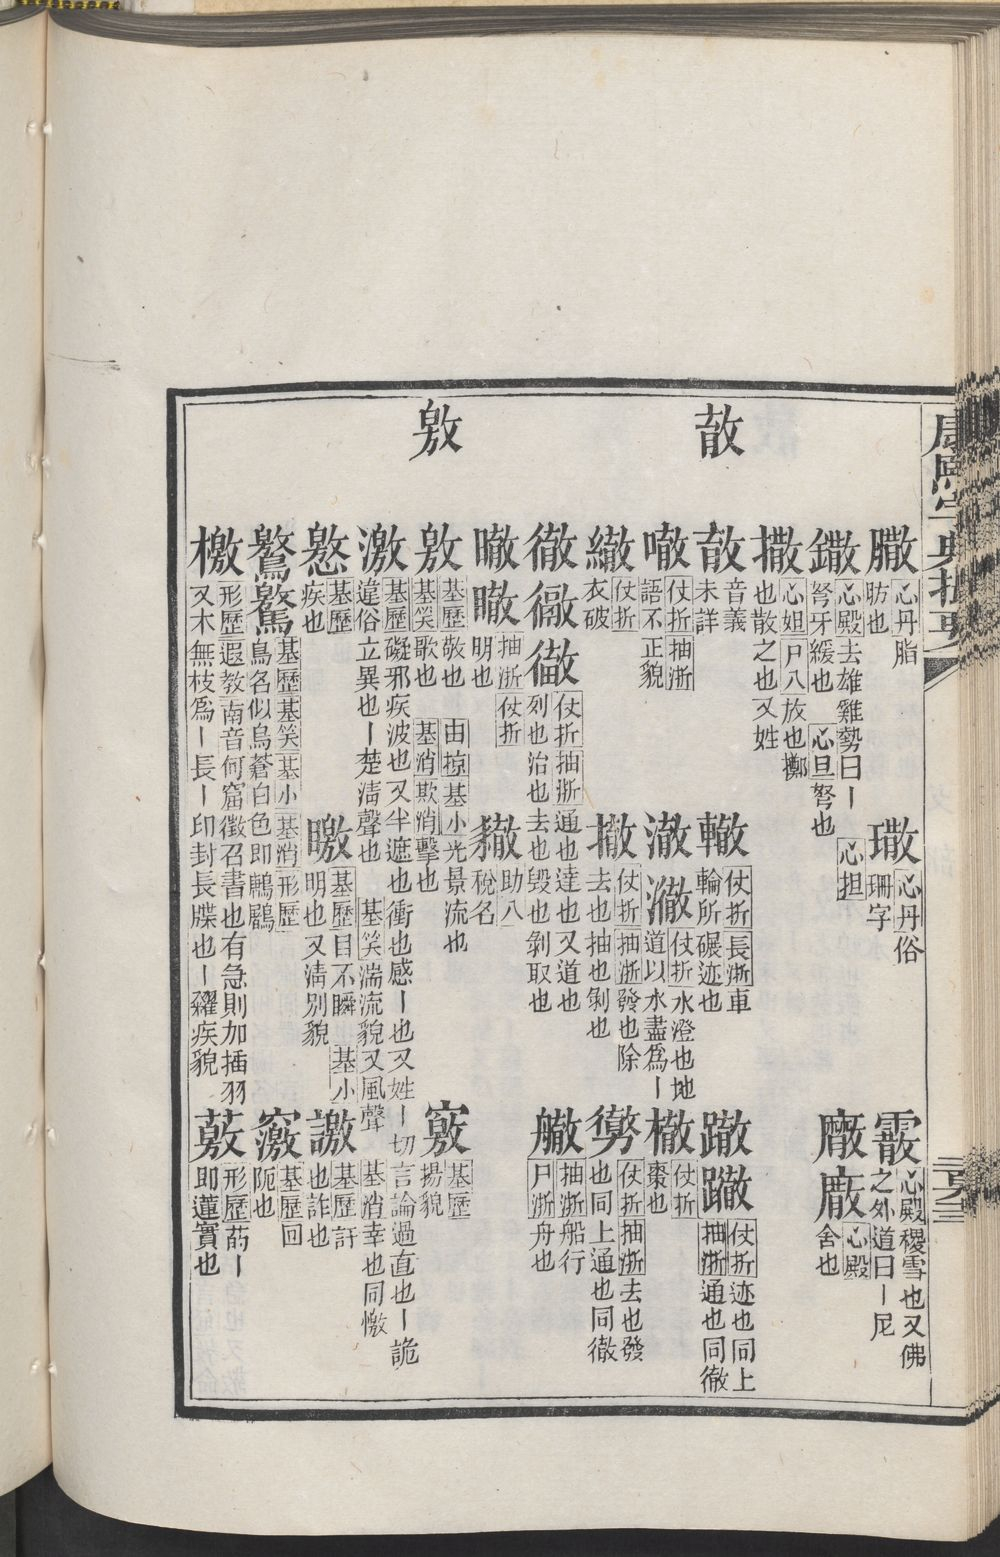 康熙字典撮要
𢿱
敫
𦠿 心丹脂肪也
璥 心丹俗珊字
霰 心殿稷雪也又佛之外道曰丨尼
鏾 心殿去雄雞勢曰丨弩牙緩也 心旦弩也 心担
廠 廠 心殿舍也
撒 心妲尸八放也擲也散之也又姓
音義未詳
轍 仗折長浙車輪所碾迹也
蹳 仗折迹也同上抽浙通也同徹
㘊 仗折抽浙語不正貌
澈 澈 仗折水澄也地道以水盡爲丨
橵 仗折棗也
仗折衣破
撤 仗折抽浙發也除去也抽也剝也
仗折抽浙去也發也同上通也同徹
徹 仗折抽浙通也達也又道也列也治也去也毀也剝取也
抽浙船行尸浙舟也
㬚 瞮 抽浙仗折明也
助八稅名
敫 基歷敬也 由掠基小光景流也基笑歌也 基消欺消擊也
竅 基歷揚貌
激 基歷礙邪疾波也又半遮也衝也感丨也又姓丨切言論過直也丨詭違俗立異也丨楚淸聲也 基笑湍流貌又風聲 基消幸也同憿
憿 基歷疾也
曒 基歷目不瞬 基小明也又淸別貌
譤 基歷訐也詐也
鷔 基歷基笑基小基消形歷鳥名似烏蒼白色即鷵鷎
竅 基歷回阨也
檄 形歷遐教南音何窟徵召書也有急則加插羽又木無枝爲丨長丨印封長牒也丨糴疾貌
薂 形歷菂丨即蓮實也